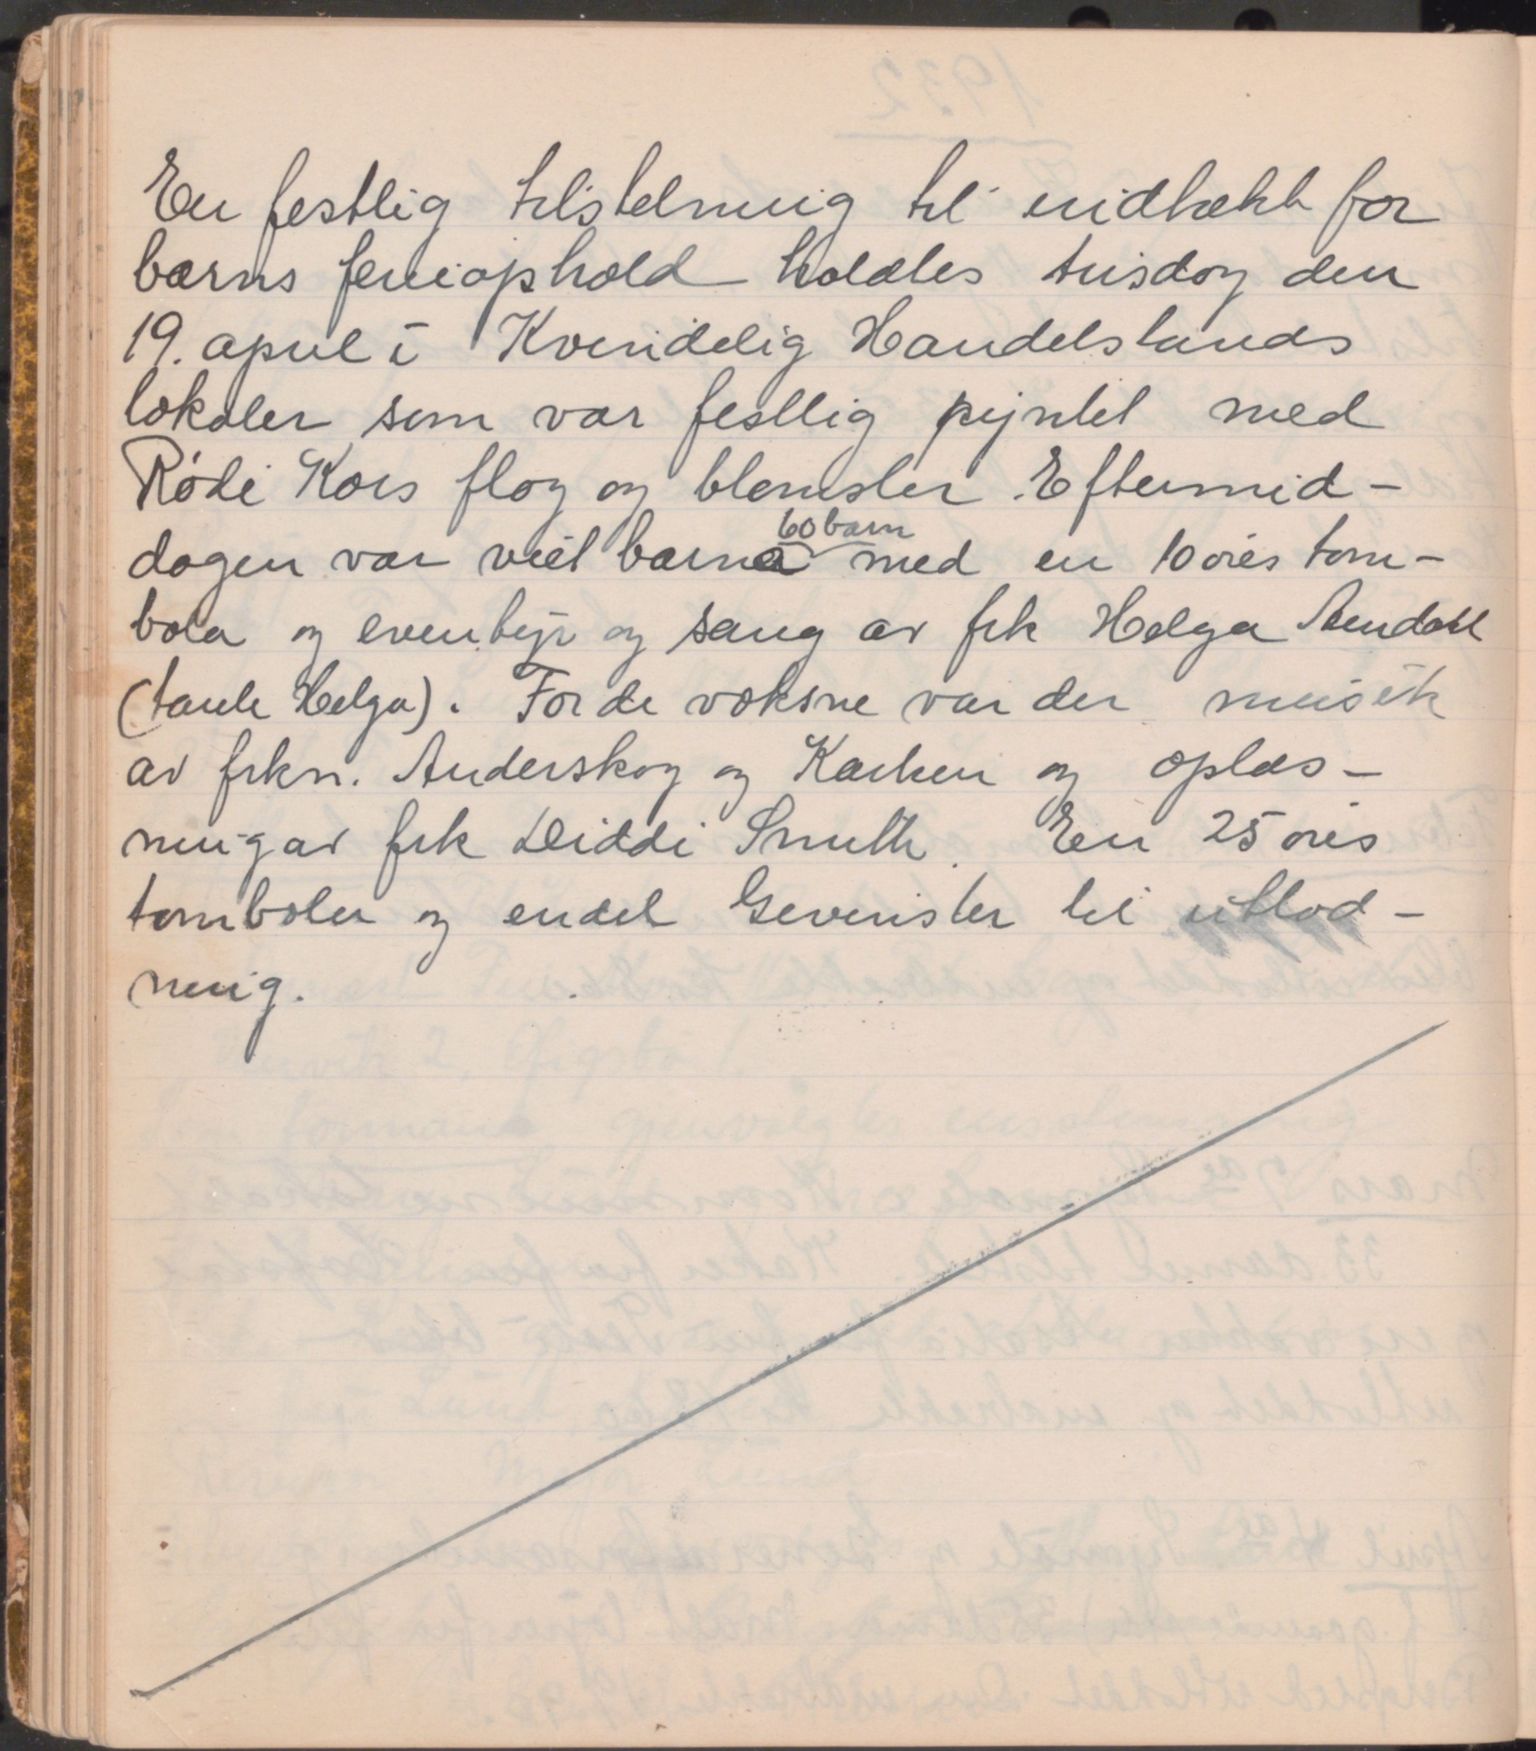 En festlig tilstelning til indtekt for
barns ferieophold holdtes tirsdag den
19. april i Kvindelig Handelstands
lokaler som var festlig pyntet med
Røde Kors flag og blomster. Eftermid-
dagen var viet barna 60 barn med en 10 øres tom-
bola og eventyr og sang av frk Helga
(tante Helga). For de voksne var der musik
av frkn. Anderskog og Karlsen og oplæs-
ning av frk Diddi Smith. En 25 øres
tombola og endel Gevinster til utlod-
ning.